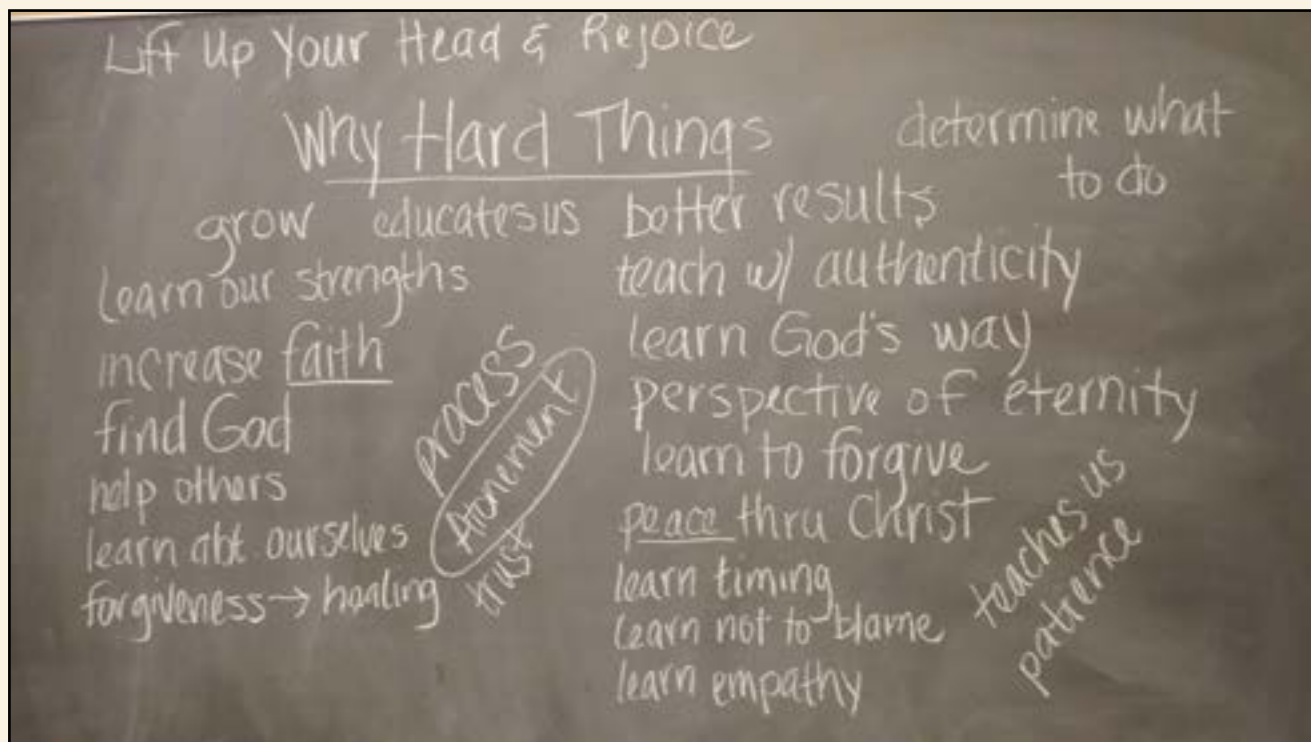 Lift Up Your Head & Rejoice
Why Hard Things
determine what
to do
grow educates us
learn our strengths
increase faith
find God
help others
learn abt ourselves
forgiveness → healing
process
Atonement
trust
better results
teach w/ authenticity
learn God's way
perspective of eternity
learn to forgive
peace thru Christ
learn timing
learn not to blame
learn empathy
teaches us
patience